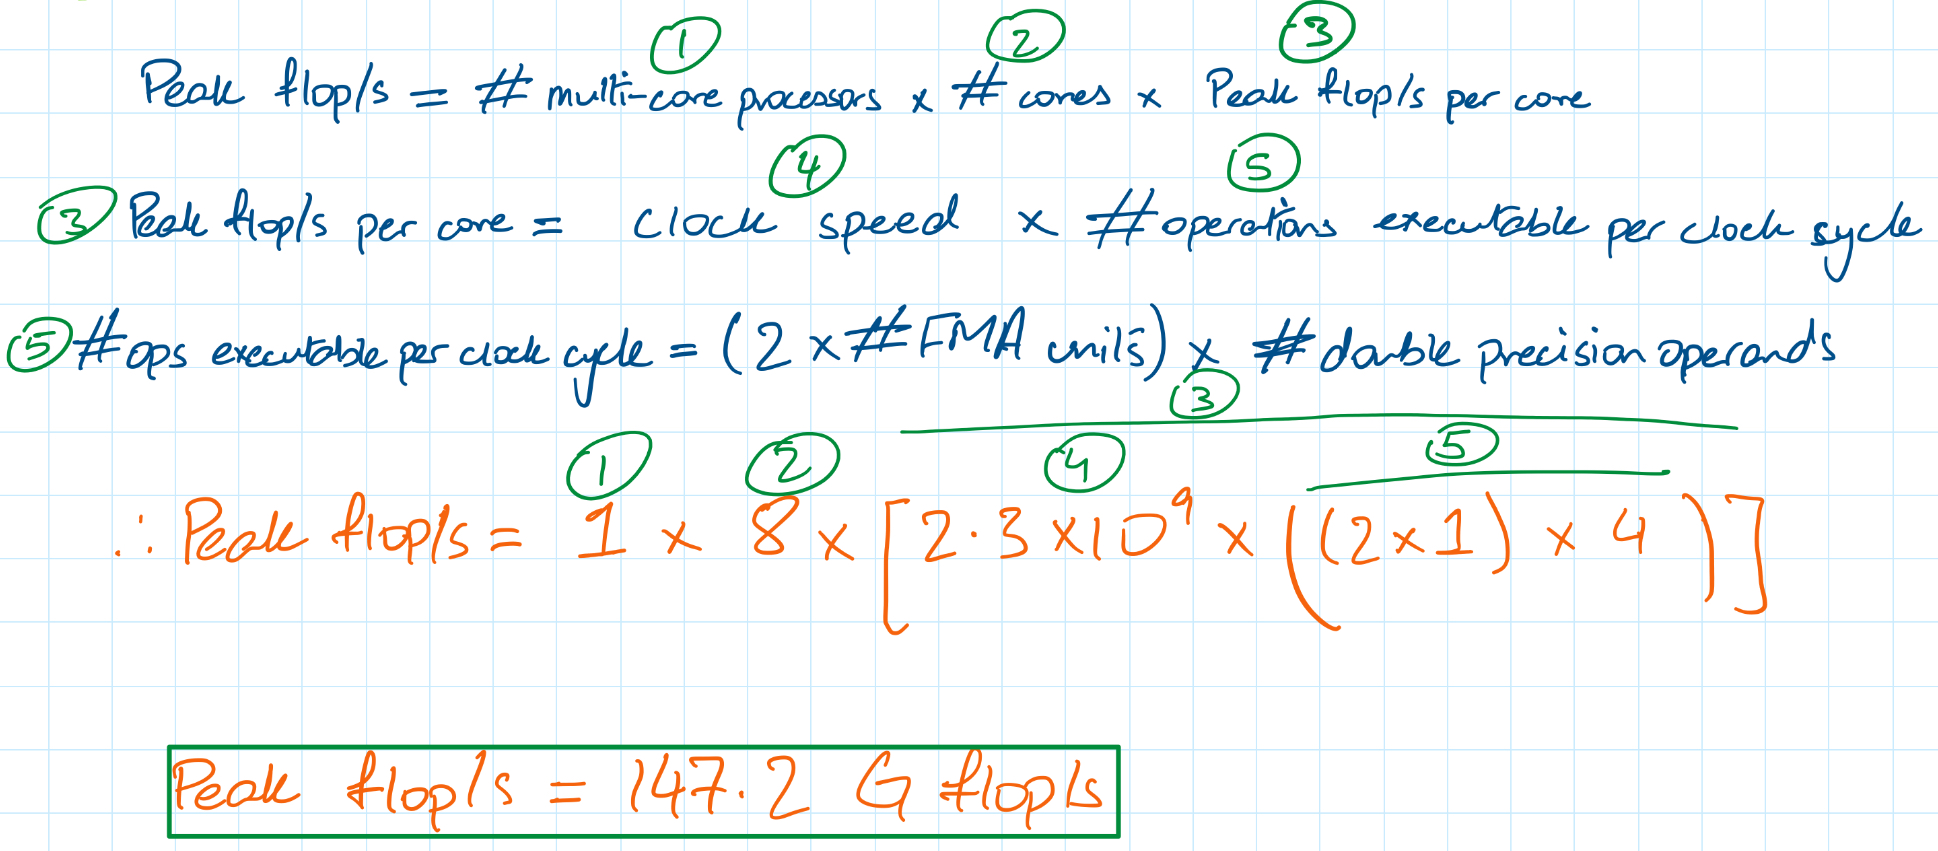 ① ② ③
Peak flop/s = # multi-core processors × # cores × Peak flop/s per core
④ ⑤
③ Peak flop/s per core = clock speed × # operations executable per clock sycle
⑤ # ops executable per clock cycle = (2 × # FMA units) × # double precision operands
③
① ② ④ ⑤
∴ Peak flop/s = 1 × 8 × [2.3 × 10⁹ × ((2×1) × 4)]
Peak flop/s = 147.2 G flop/s